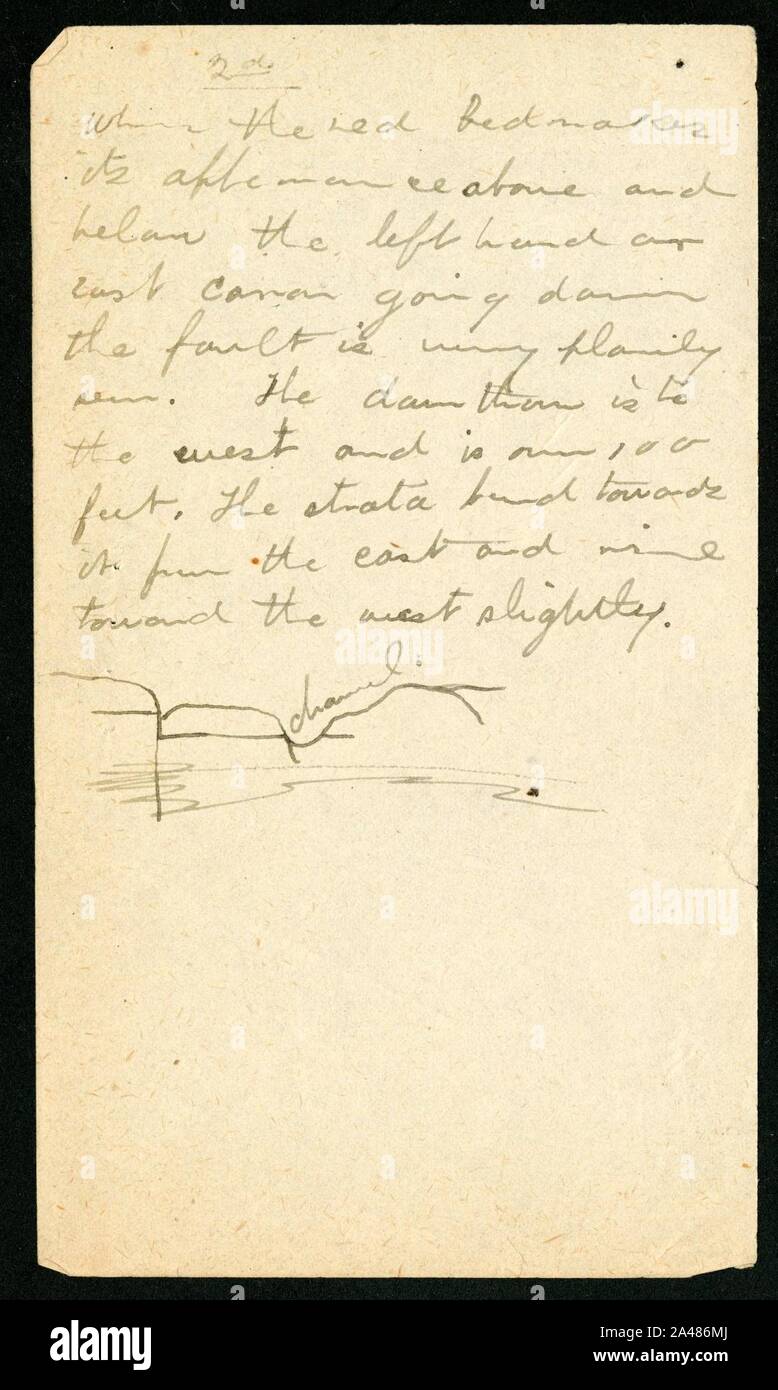 2d
where the red bed makes
its appearance above and
below the left hand or
east canon going down
the fault is very plainly
seen. The down throw is to
the west and is over 100
feet. The strata bend towards
it from the east and rise
toward the west slightly.
channel.
alamy
Image ID: 2A486MJ
www.alamy.com